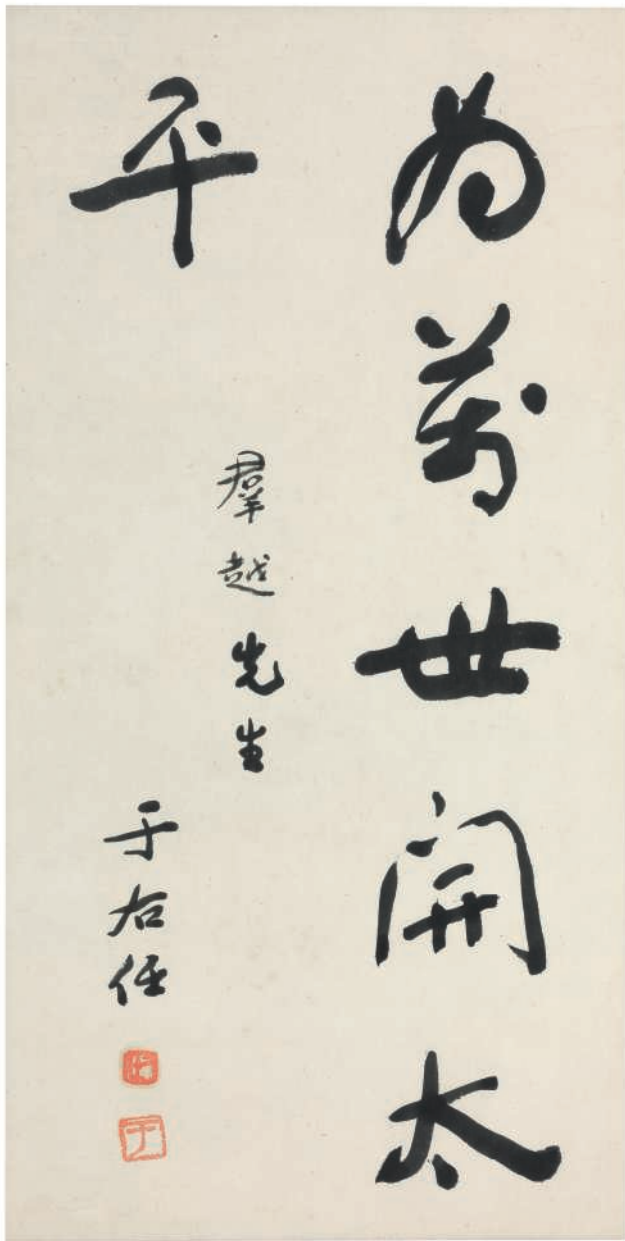 为萬世開太
平
羣越先生
于右任
右任
于